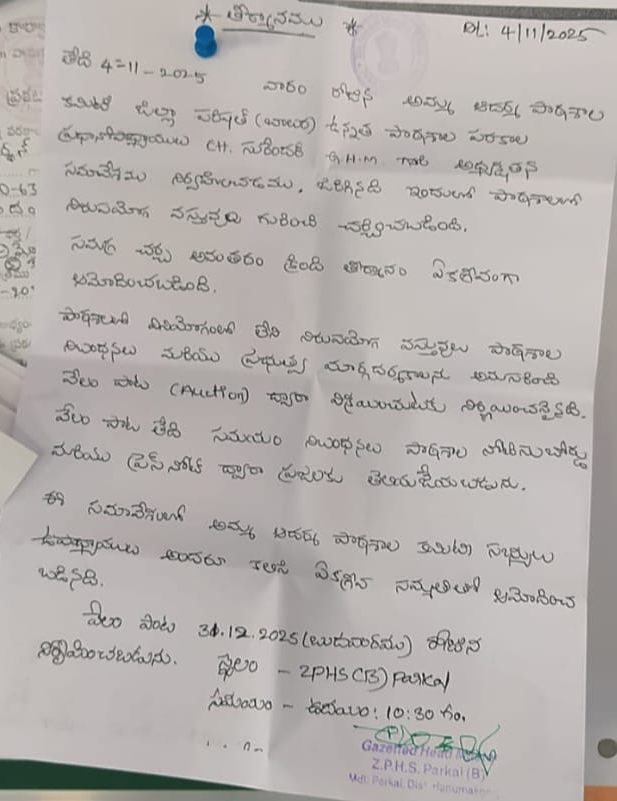 * తీర్మానము *
Dt: 4/11/2025
తేది 4-11-2025 వారం రోజున అమ్మ ఆదర్శ పాఠశాల
కమిటీ జిల్లా పరిషత్ (బాలుర) ఉన్నత పాఠశాల పరకాల
ప్రధానోపాధ్యాయులు CH. సురేందర్ G.H.M గారి అధ్యక్షతన
సమావేశము నిర్వహించడము, జరిగినది ఇందులో పాఠశాలలో
నిరుపయోగ వస్తువుల గురించి చర్చించబడింది.
సమగ్ర చర్చ అనంతరం క్రింది తీర్మానం ఏకగ్రీవంగా
ఆమోదించబడింది.
పాఠశాలలో వినియోగంలో లేని నిరుపయోగ వస్తువులు పాఠశాల
నిబంధనలు మరియు ప్రభుత్వ మార్గదర్శకాలను అనుసరించి
వేలం పాట (Auction) ద్వారా విక్రయించుటకు నిర్ణయించనైనది.
వేలం పాట తేది సమయం నిబంధనలు పాఠశాల నోటీసుబోర్డు
మరియు ప్రెస్ నోట్ ద్వారా ప్రజలకు తెలియజేయబడును.
ఈ సమావేశంలో అమ్మ ఆదర్శ పాఠశాల కమిటి సభ్యులు
ఉపాధ్యాయులు అందరూ కలిసి ఏకగ్రీవ సమ్మతితో ఆమోదించ
బడినది.
వేలం పాట 31.12.2025 (బుధవారము) రోజున
నిర్వహించబడును. స్థలం - ZPHS(B) Parkal
సమయం - ఉదయం: 10:30 గం.
Gazetted Head
Z.P.H.S. Parkal (B)
Mdl: Parkal, Dist: Hanumakonda